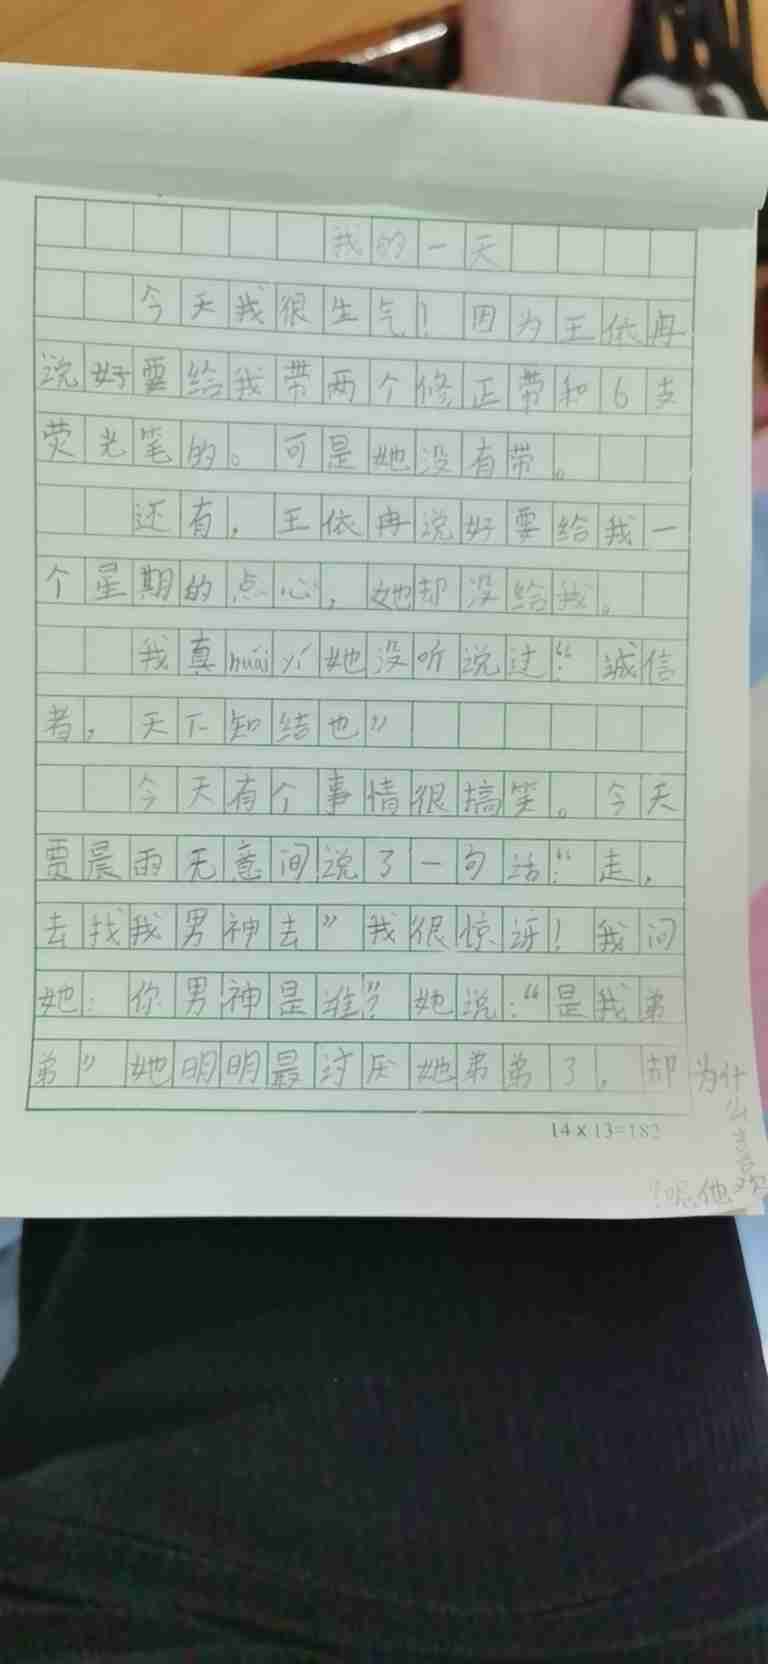 我的一天
今天我很生气！因为王依冉
说好要给我带两个修正带和6支
荧光笔的。可是她没有带。
还有，王依冉说好要给我一
个星期的点心，她却没给我。
我真huái yí她没听说过：“诚信
者，天下知结也”
今天有个事情很搞笑。今天
贾晨雨无意间说了一句话：“走，
去找我男神去”我很惊讶！我问
她：你男神是谁？”她说：“是我弟
弟”她明明最讨厌她弟弟了，却为什
么喜欢
他呢？
14×13=182